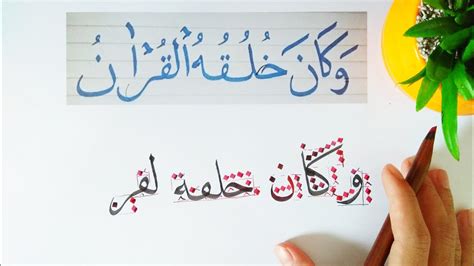 وَكَانَ خُلُقُهُ الْقُرْانُ
وكان خلقه لقر